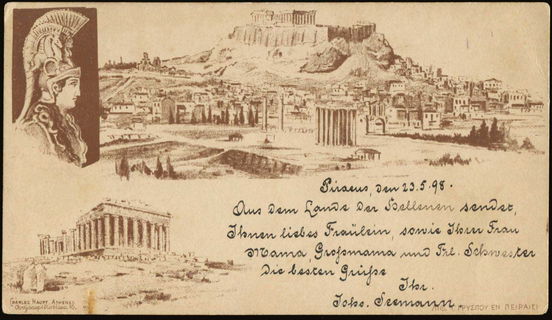 Piraeus, den 23.5.98.
Aus dem Lande der Hellenen sendet,
Ihnen liebes Fräulein, sowie Ihrer Frau
Mama Großmama und Frl. Schwester
die besten Grüße
Ihr.
Johs. Seemann.
CHARLES HAUPT ATHÈNES
ΧΡΥΣΠΟΥ ΕΝ ΠΕΙΡΑΙΕΙ